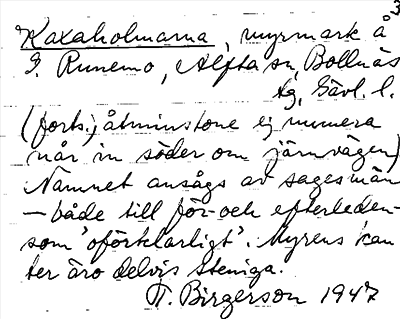 3
Kaxaholmarna, myrmark å
I. Runemo, Alfta sn, Bollnäs
tg, Gävl. l.
(forts.) åtminstone ej numera
når in söder om järnvägen)
Namnet ansågs av sagesmän
– både till för- och efterleden –
som 'oförklarligt'. Myrens kan
ter äro delvis steniga.
T. Birgerson 1947